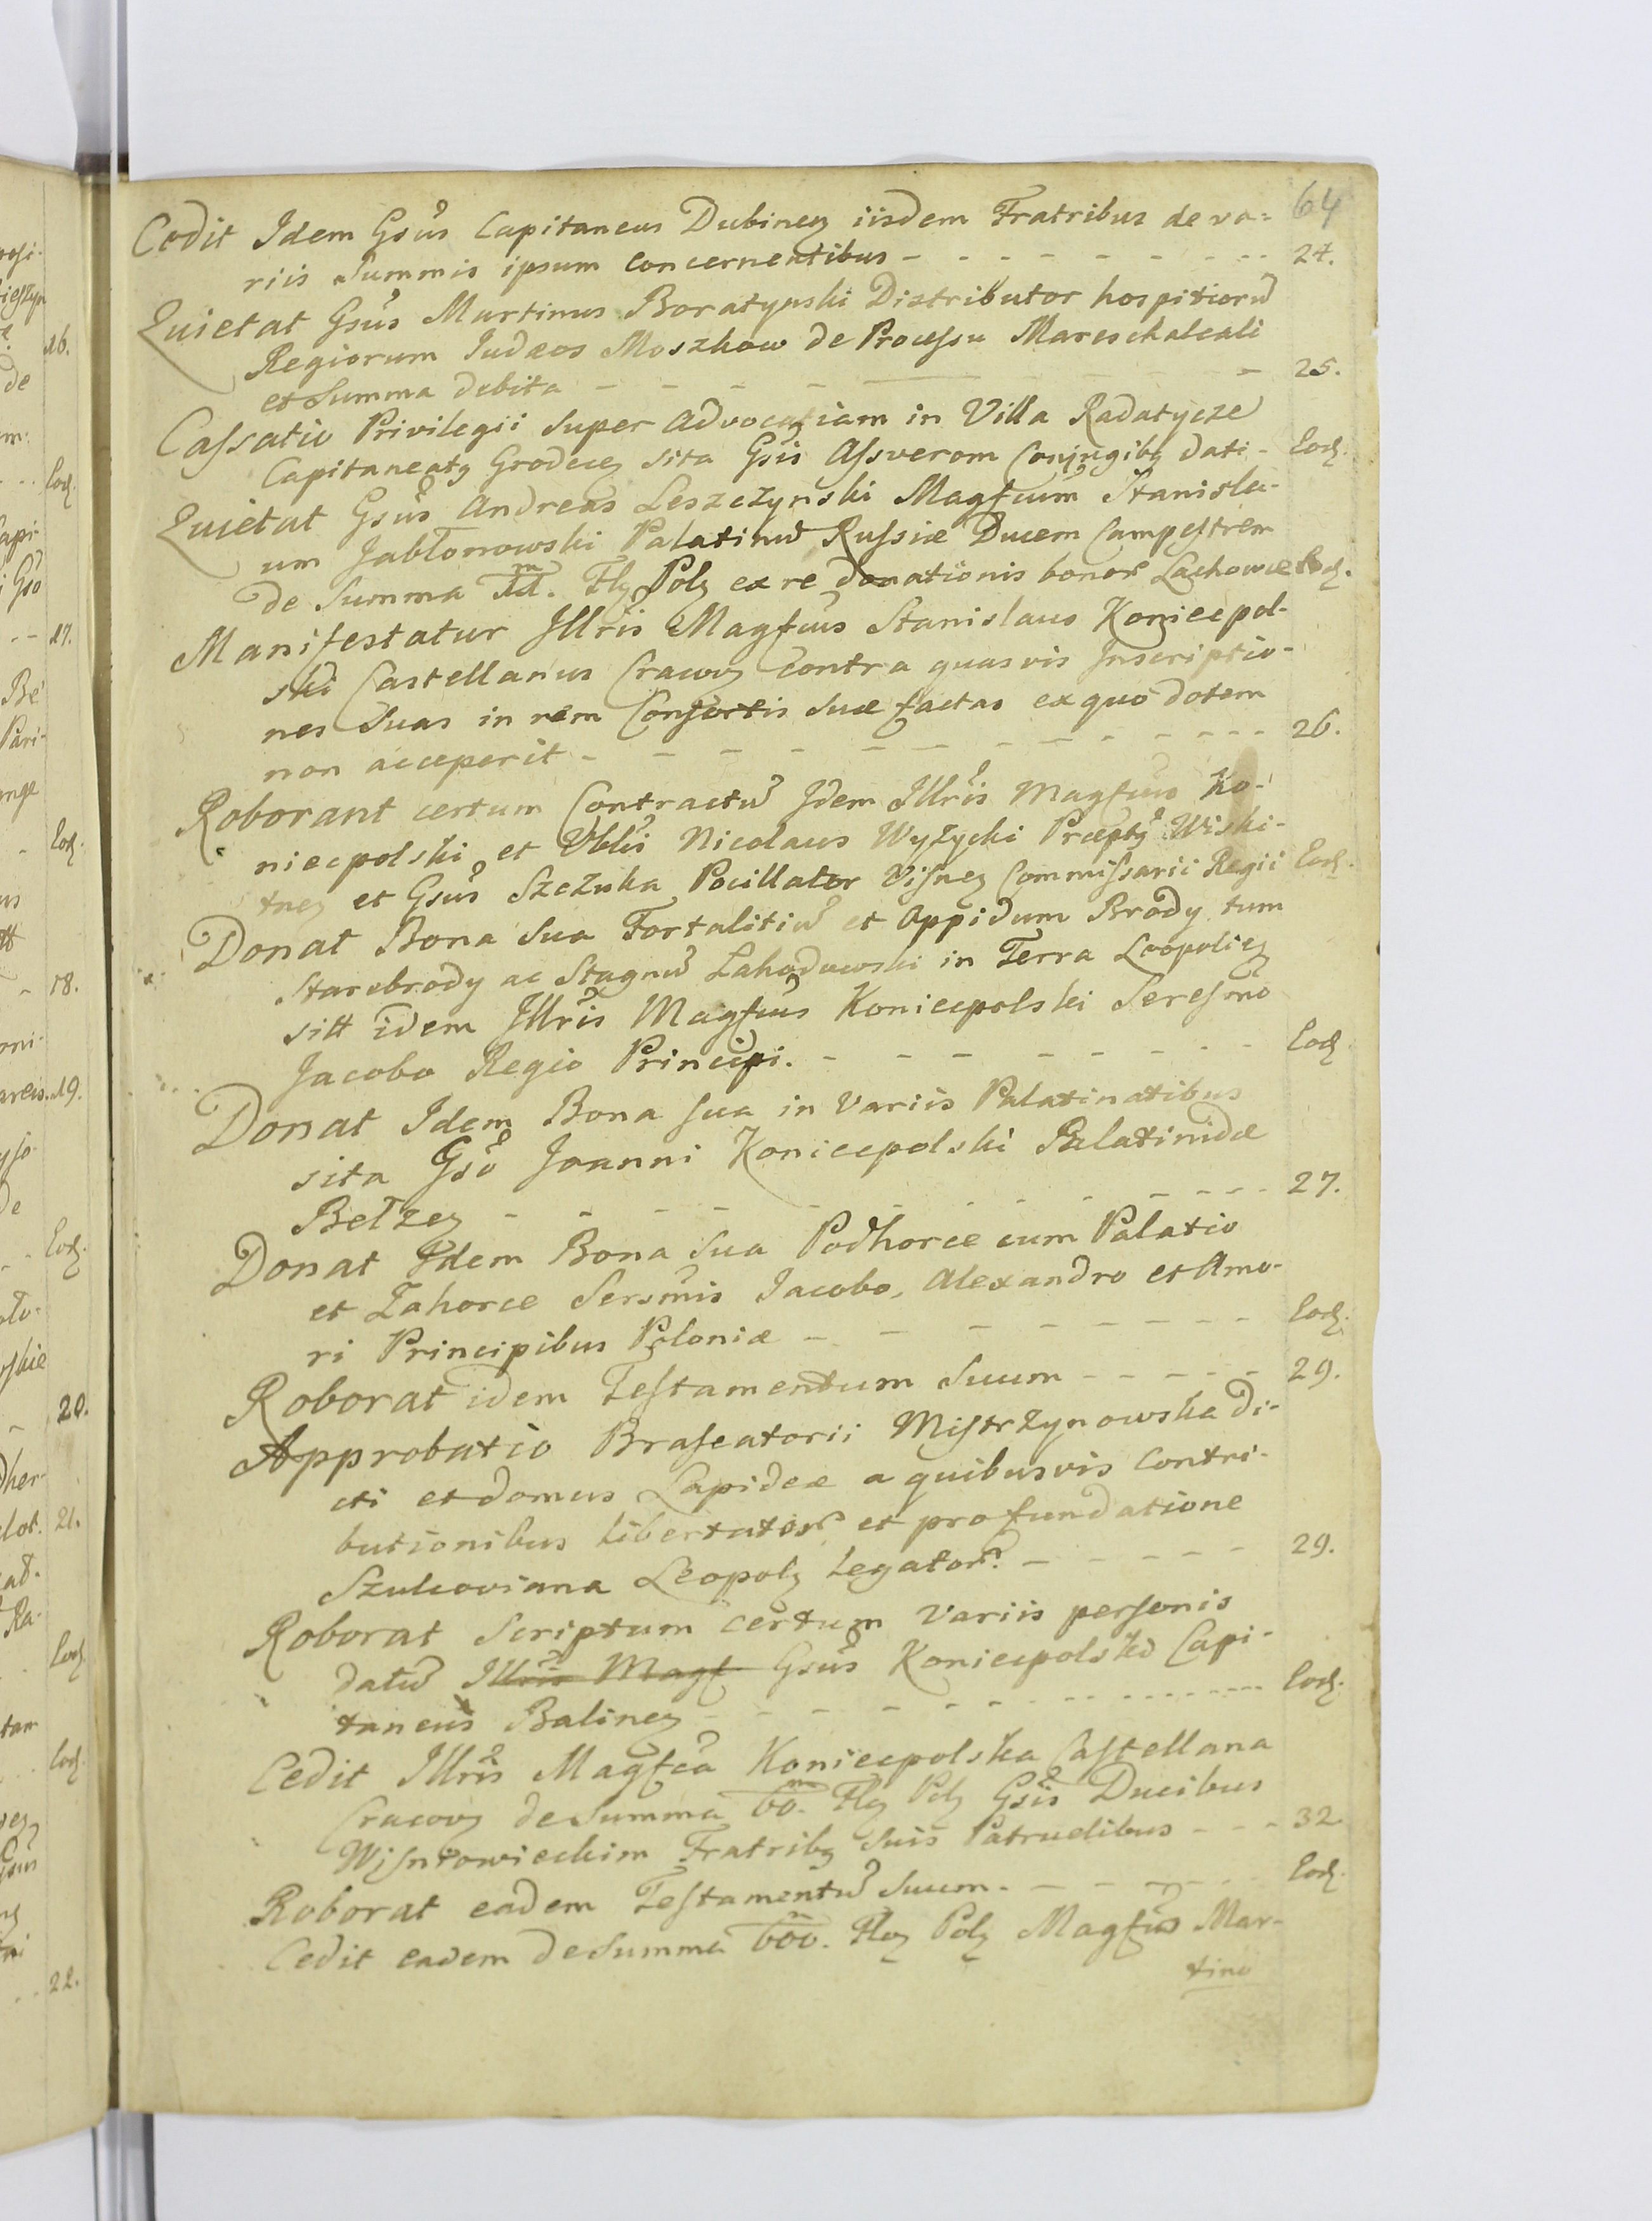 64
Cedit Idem Gsus Capitaneus Dubineg iisdem Fratribus de va=
riis Summis ipsum concernentibus - - - - - - - - - 24.
Quietat Gsus Martinus Boratynski Distributor hospitioru
Regiorum Iudæos Moszkow de Processu Mareschalcali
et Summa debita - - - - - 25.
Cassatio Privilegii super Advocatiam in Villa Radatycze
Capitaneatq Grodeceg sita Gsis Assverom Conjugibq dati - Eod.
Quietat Gsus Andreas Leszczynski Magfcum Stanisla-
um Jabłonowski Palatinu Russiæ Ducem Campestrem
de Summa Flg Polg ex re donationis bonor Lachowce Eod.
Manifestatur Illris Magfcus Stanislaus Koniecpol-
ski Castellanus Cracovg contra quasvis Inscriptio-
nes Suas in rem Consortis suæ factas ex quo dotem
non acceperit - - - - - - - - - - - 26.
Roborant certum Contractu Idem Illris Magfcus Ko-
niecpolski et Nicolaus Wyżycki Wiski-
tneg et Gsus Szczuka Pocillator Visneg Commissarii Regii Eod.
Donat Bona sua Fortalitiu et Oppidum Brody tum
Starebrody ac Stagnu Lahodowski in Terra Leopolieg
sitt idem Illris Magfcus Koniecpolski Seresmo
Jacobo Regio Principi. - - - - - - - Eod.
Donat Idem Bona sua in Variis Palatinatibus
sita Gso Joanni Koniecpolski Palatinidæ
Bełzeg - - - - - - - - - - - 27.
Donat Idem Bona sua Podhorce cum Palatio
et Zahorce Sersmis Jacobo, Alexandro et Ama-
ri Principibus Poloniæ - - - - - - - - Eod.
Roborat idem Testamentum Suum - - - - - 29.
Approbatio Braseatorii Mistrzynowska di-
cti et domus Lapideæ a quibusvis Contri-
butionibus libertator et pro fundatione
Szulcoviana Leopolg legator. - - - - - 29.
Roborat Scriptum certum Variis personis
datu Illris Magf Gsus Koniecpolski Capi-
taneus Balineg - - - - - - - - - Eod.
Cedit Illris Magfca Koniecpolska Castellana
Cracovg de Summa 60. Flg Polg Gsis Ducibus
Wisniowieckim Fratribq Suis Patruelibus - - - 32
Roborat eadem Testamentu Suum. - - - - - Eod.
Cedit eadem de Summa 600. Flg Polg Magfco Mar-
tino